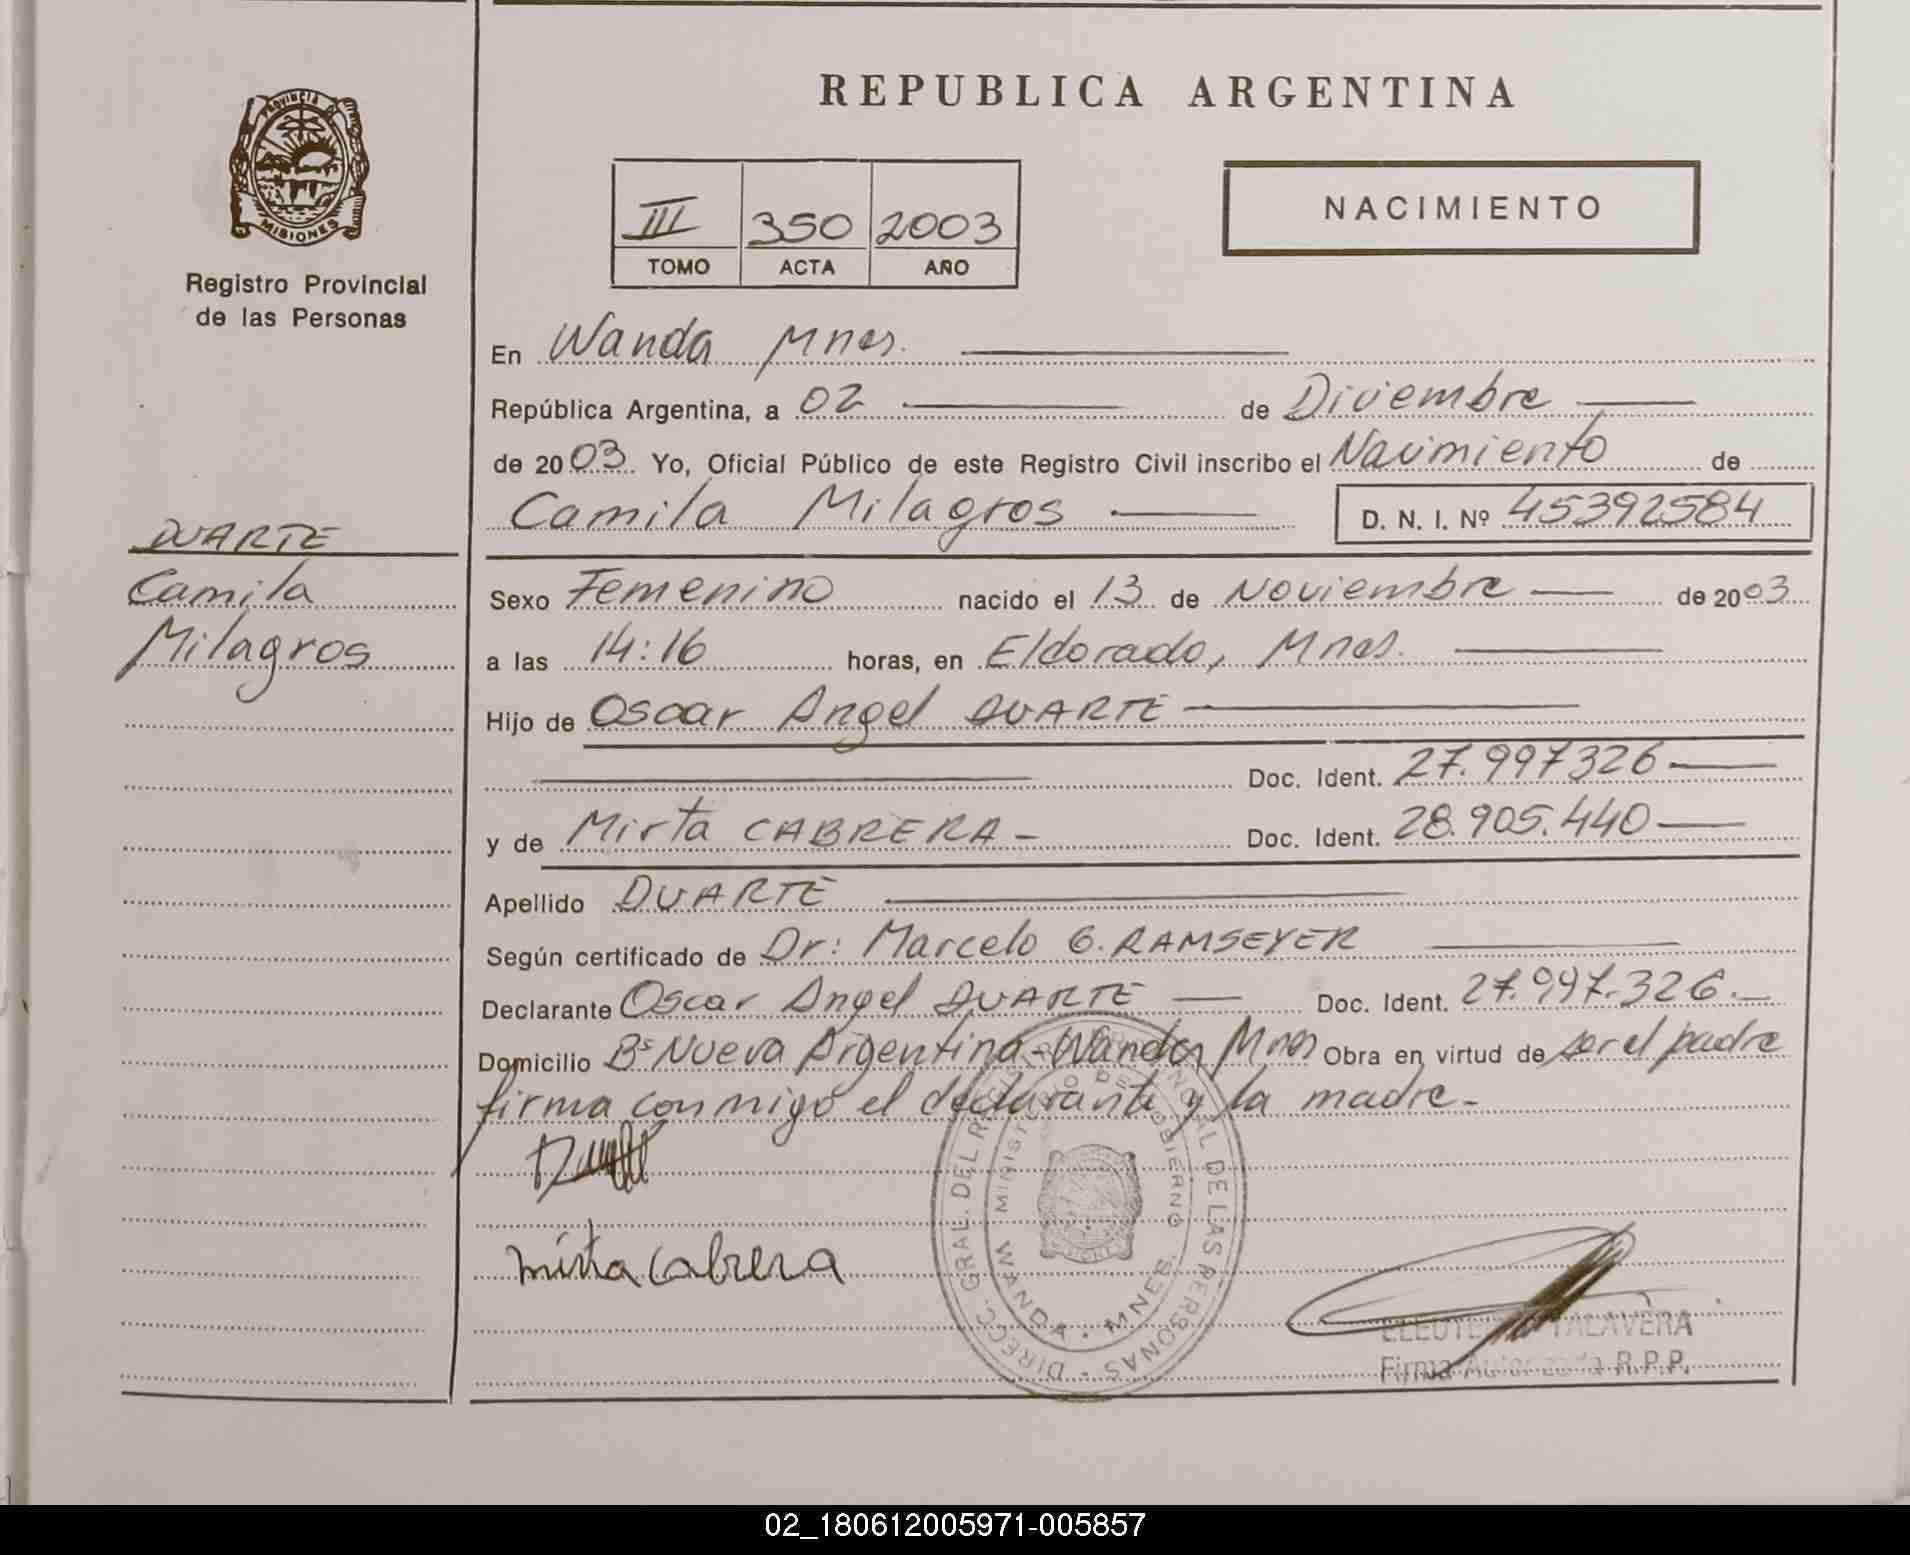 REPUBLICA ARGENTINA
PROVINCIA DE
MISIONES
Registro Provincial
de las Personas
III 350 2003
TOMO ACTA AÑO
NACIMIENTO
En Wanda Mnes.
República Argentina, a 02 de Diciembre
de 2003. Yo, Oficial Público de este Registro Civil inscribo el Nacimiento de
Camila Milagros D. N. I. Nº 45392584
DUARTE
Camila
Milagros
Sexo Femenino nacido el 13 de Noviembre de 2003
a las 14:16 horas, en Eldorado, Mnes.
Hijo de Oscar Angel DUARTE
Doc. Ident. 27.997326
y de Mirta CABRERA - Doc. Ident. 28.905.440
Apellido DUARTE
Según certificado de Dr: Marcelo G. RAMSEYER
Declarante Oscar Angel DUARTE Doc. Ident. 27.997.326.
Domicilio Bº Nueva Argentina - Wanda, Mnes Obra en virtud de ser el padre
firma conmigo el declarante y la madre.-
mirta cabrera
DIRECC. GRAL. DEL REG. PROVINCIAL DE LAS PERSONAS
MINISTERIO DE GOBIERNO
WANDA - MNES.
TALAVERA
Firma Autorizada R.P.P.
02_180612005971-005857